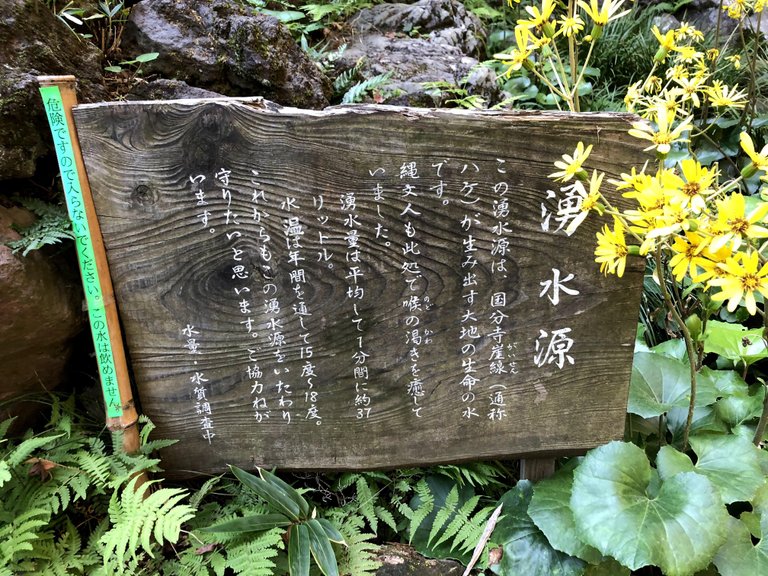 湧水源
この湧水源は、国分寺崖線（通称
がいせん
ハケ）が生み出す大地の生命の水
です。
縄文人も此処で喉の渇きを癒して
のど かわ
いました。
湧水量は平均して1分間に約37
リットル。
水温は年間を通して15度〜18度。
これからもこの湧水源をいたわり
守りたいと思います。ご協力ねが
います。
水量・水質調査中
危険ですので入らないでください。この水は飲めません。